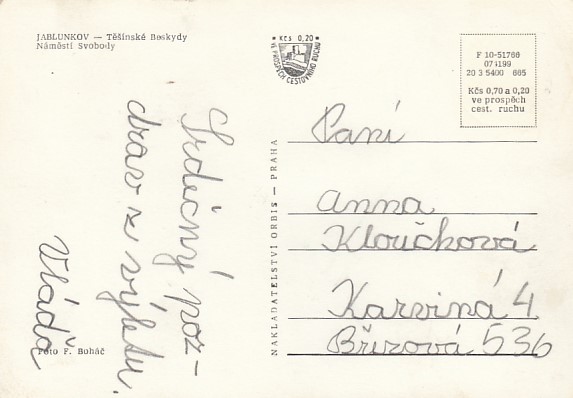 JABLUNKOV — Těšínské Beskydy
Náměstí Svobody
Srdečný poz-
drav z výletu.
Vláďa
Foto F. Boháč
NAKLADATELSTVÍ ORBIS — PRAHA
* Kčs 0,20 *
VE PROSPĚCH CESTOVNÍHO RUCHU
F 10-51766
074199
20 3 5400 665
Kčs 0,70 a 0,20
ve prospěch
cest. ruchu
Paní
Anna
Kloučková
Karviná 4
Březová 536